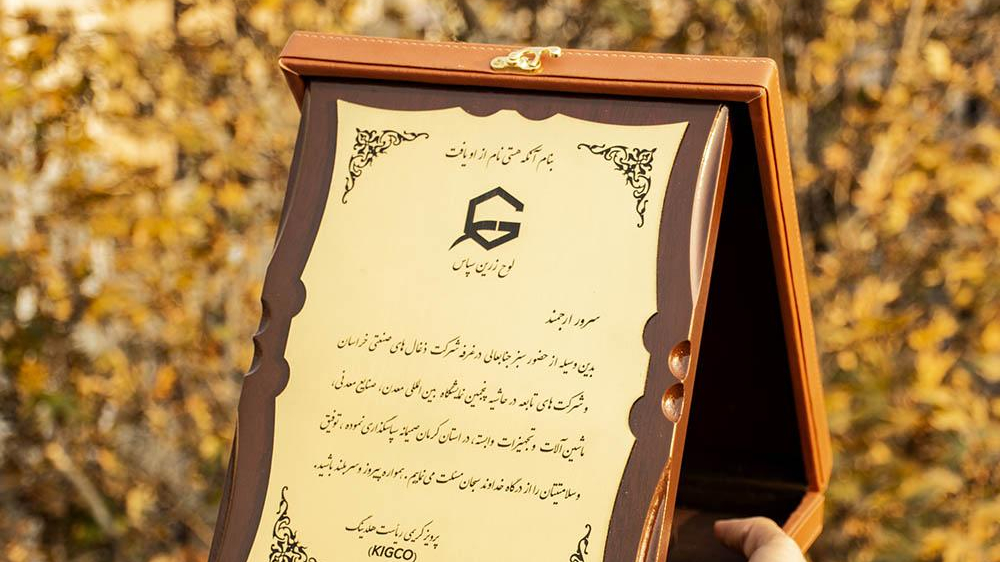 بنام آنکه هستی نام از او یافت
لوح زرین سپاس
سرور ارجمند
بدین وسیله از حضور سبز جنابعالی در غرفه شرکت ذغال های صنعتی خراسان
و شرکت های تابعه در حاشیه پنجمین نمایشگاه بین المللی معدن، صنایع معدنی،
ماشین آلات و تجهیزات وابسته، در استان کرمان صمیمانه سپاسگذاری نموده، توفیق
و سلامتیتان را از درگاه خداوند سبحان مسئلت می نماییم. همواره پیروز و سربلند باشید.
پرویز کریمی ریاست هلدینگ
(KIGCO)